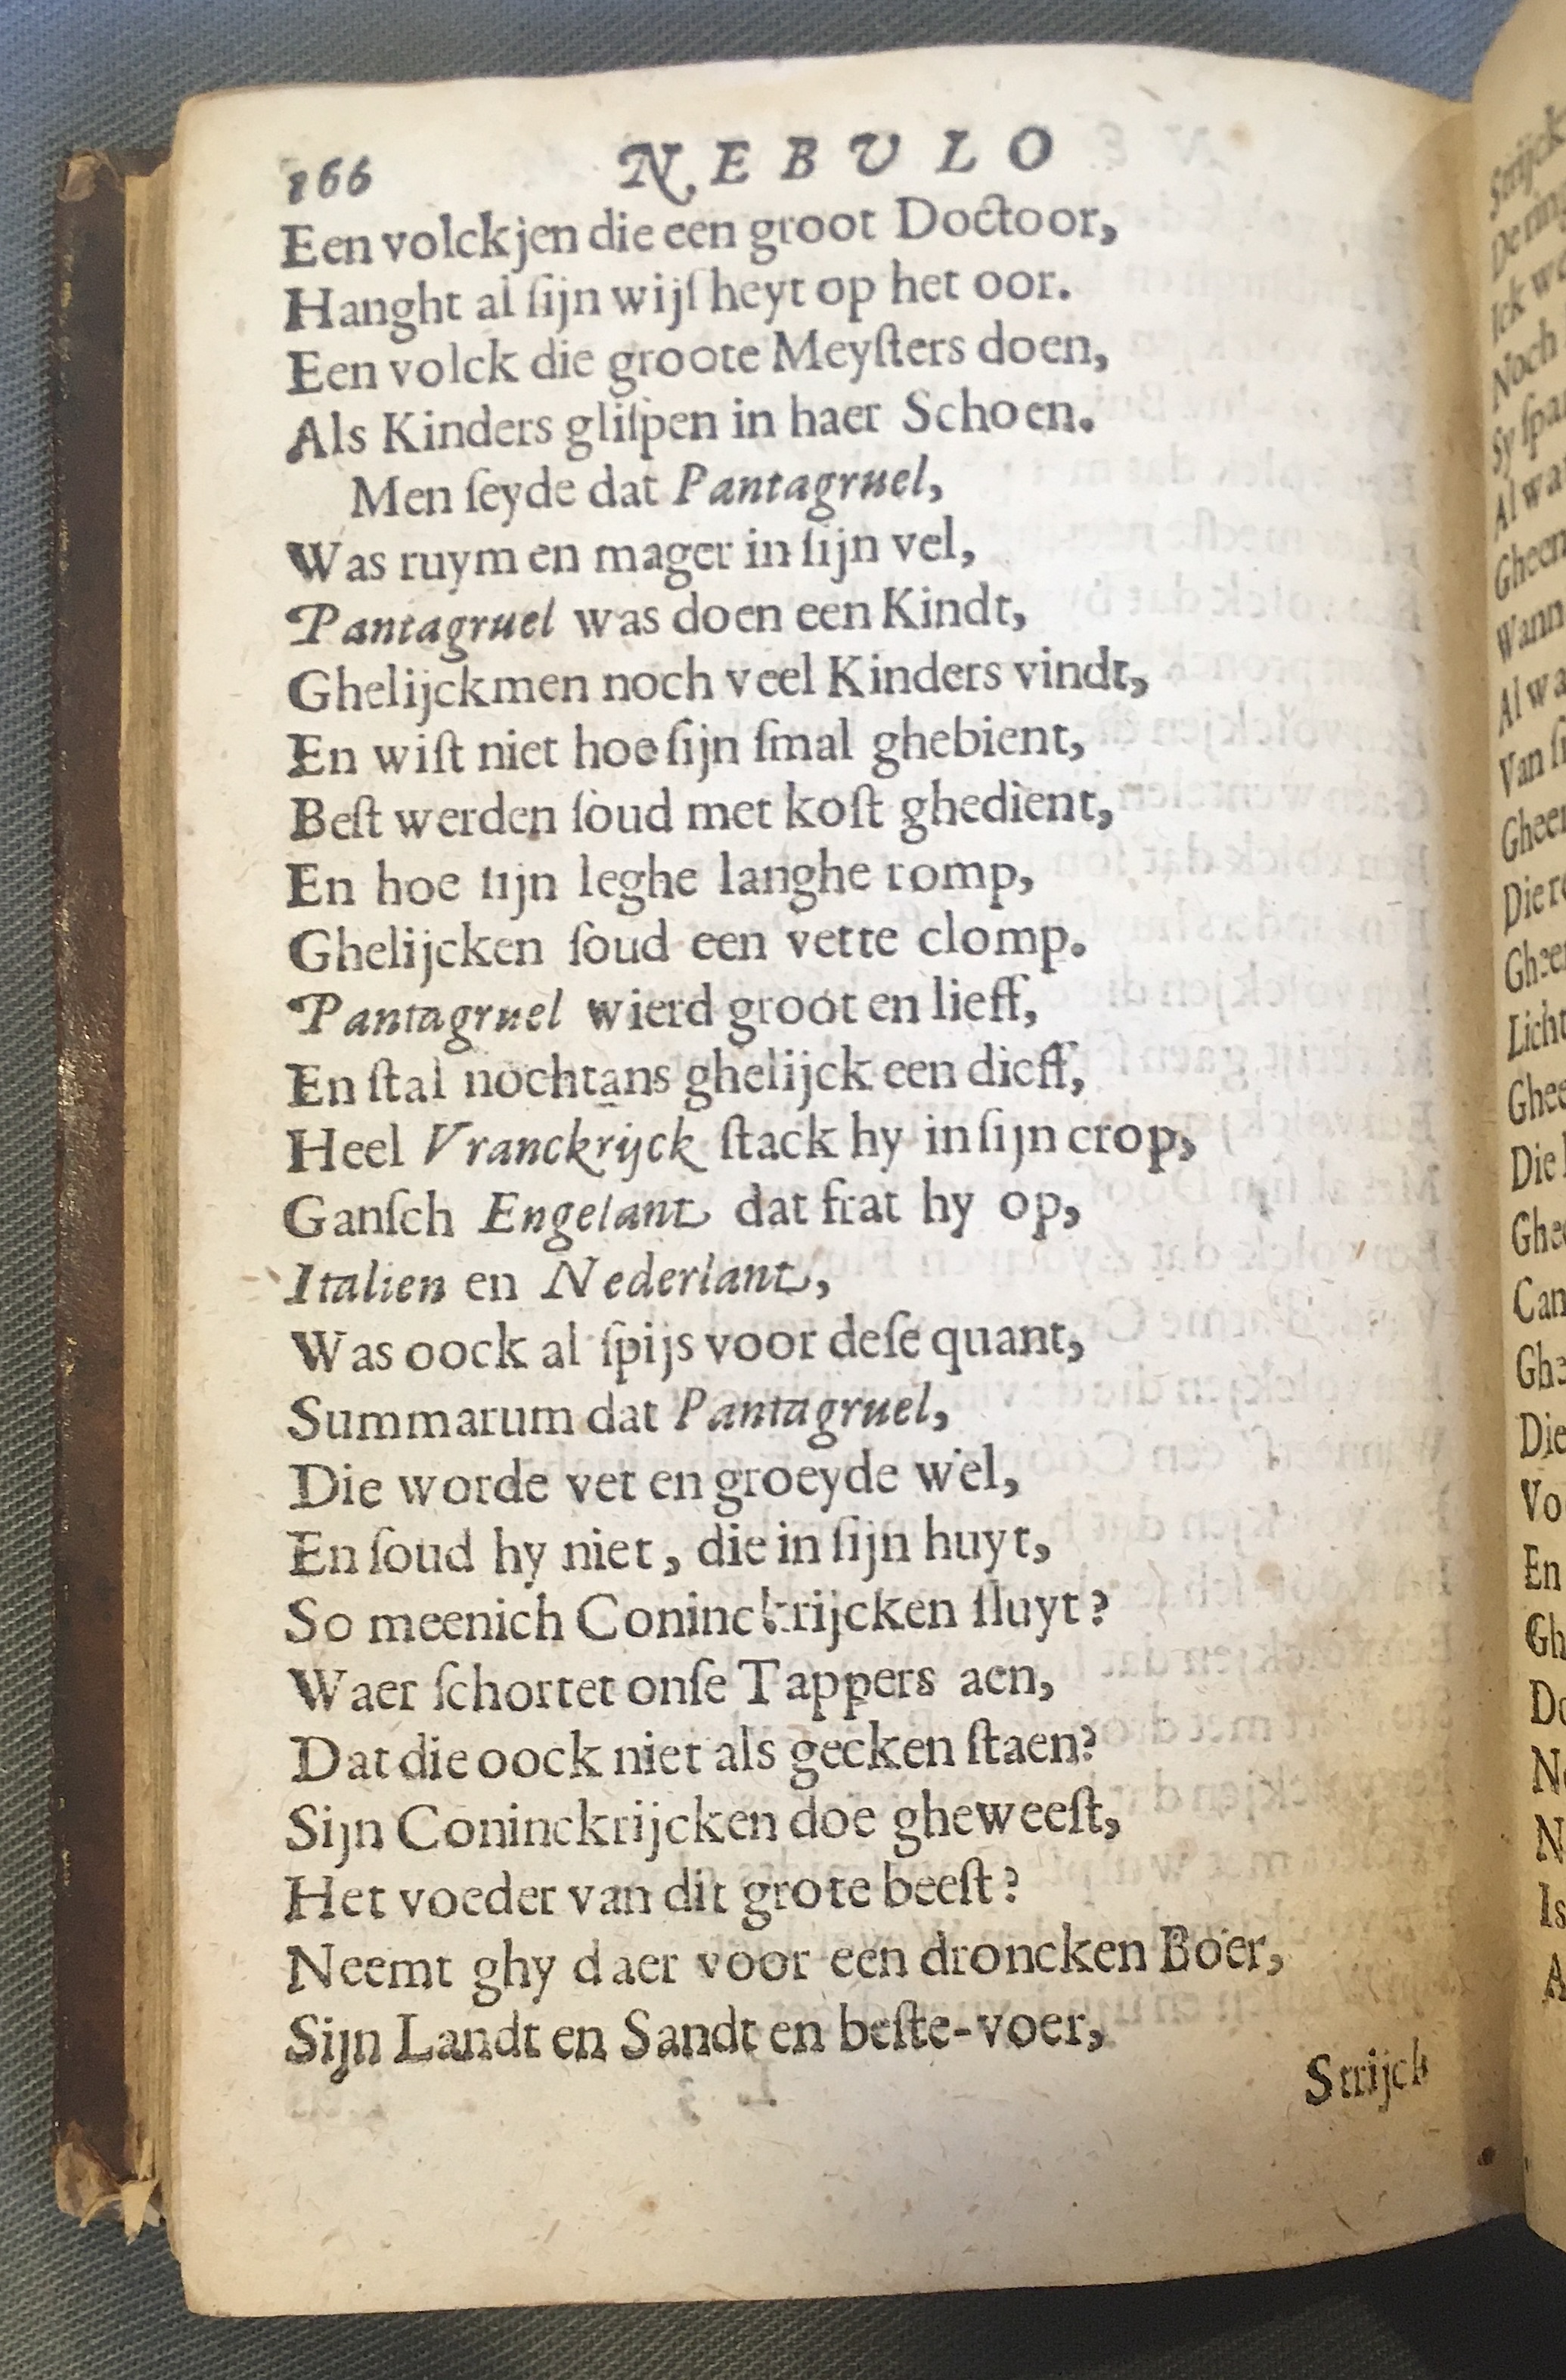 166 NEBULO
Een volckjen die een groot Doctoor,
Hanght al ſijn wijſheyt op het oor.
Een volck die groote Meyſters doen,
Als Kinders gliſpen in haer Schoen.
Men ſeyde dat Pantagruel,
Was ruym en mager in ſijn vel,
Pantagruel was doen een Kindt,
Ghelijckmen noch veel Kinders vindt,
En wiſt niet hoe ſijn ſmal ghebient,
Beſt werden ſoud met koſt ghedient,
En hoe ſijn leghe langhe romp,
Ghelijcken ſoud een vette clomp.
Pantagruel wierd groot en lieff,
En ſtal nochtans ghelijck een dieff,
Heel Vranckrijck ſtack hy in ſijn crop,
Ganſch Engelant dat frat hy op,
Italien en Nederlant,
Was oock al ſpijs voor deſe quant,
Summarum dat Pantagruel,
Die worde vet en groeyde wel,
En ſoud hy niet, die in ſijn huyt,
So meenich Coninckrijcken ſluyt?
Waer ſchortet onſe Tappers aen,
Dat die oock niet als gecken ſtaen?
Sijn Coninckrijcken doe gheweeſt,
Het voeder van dit grote beeſt?
Neemt ghy daer voor een droncken Boer,
Sijn Landt en Sandt en beſte-voer,
Strijck
Strijck
Ick
Noch
Sy
Al
Gheen
Wann
Al
Van
Die
Licht
Die
Die
Vo
En
Is
A